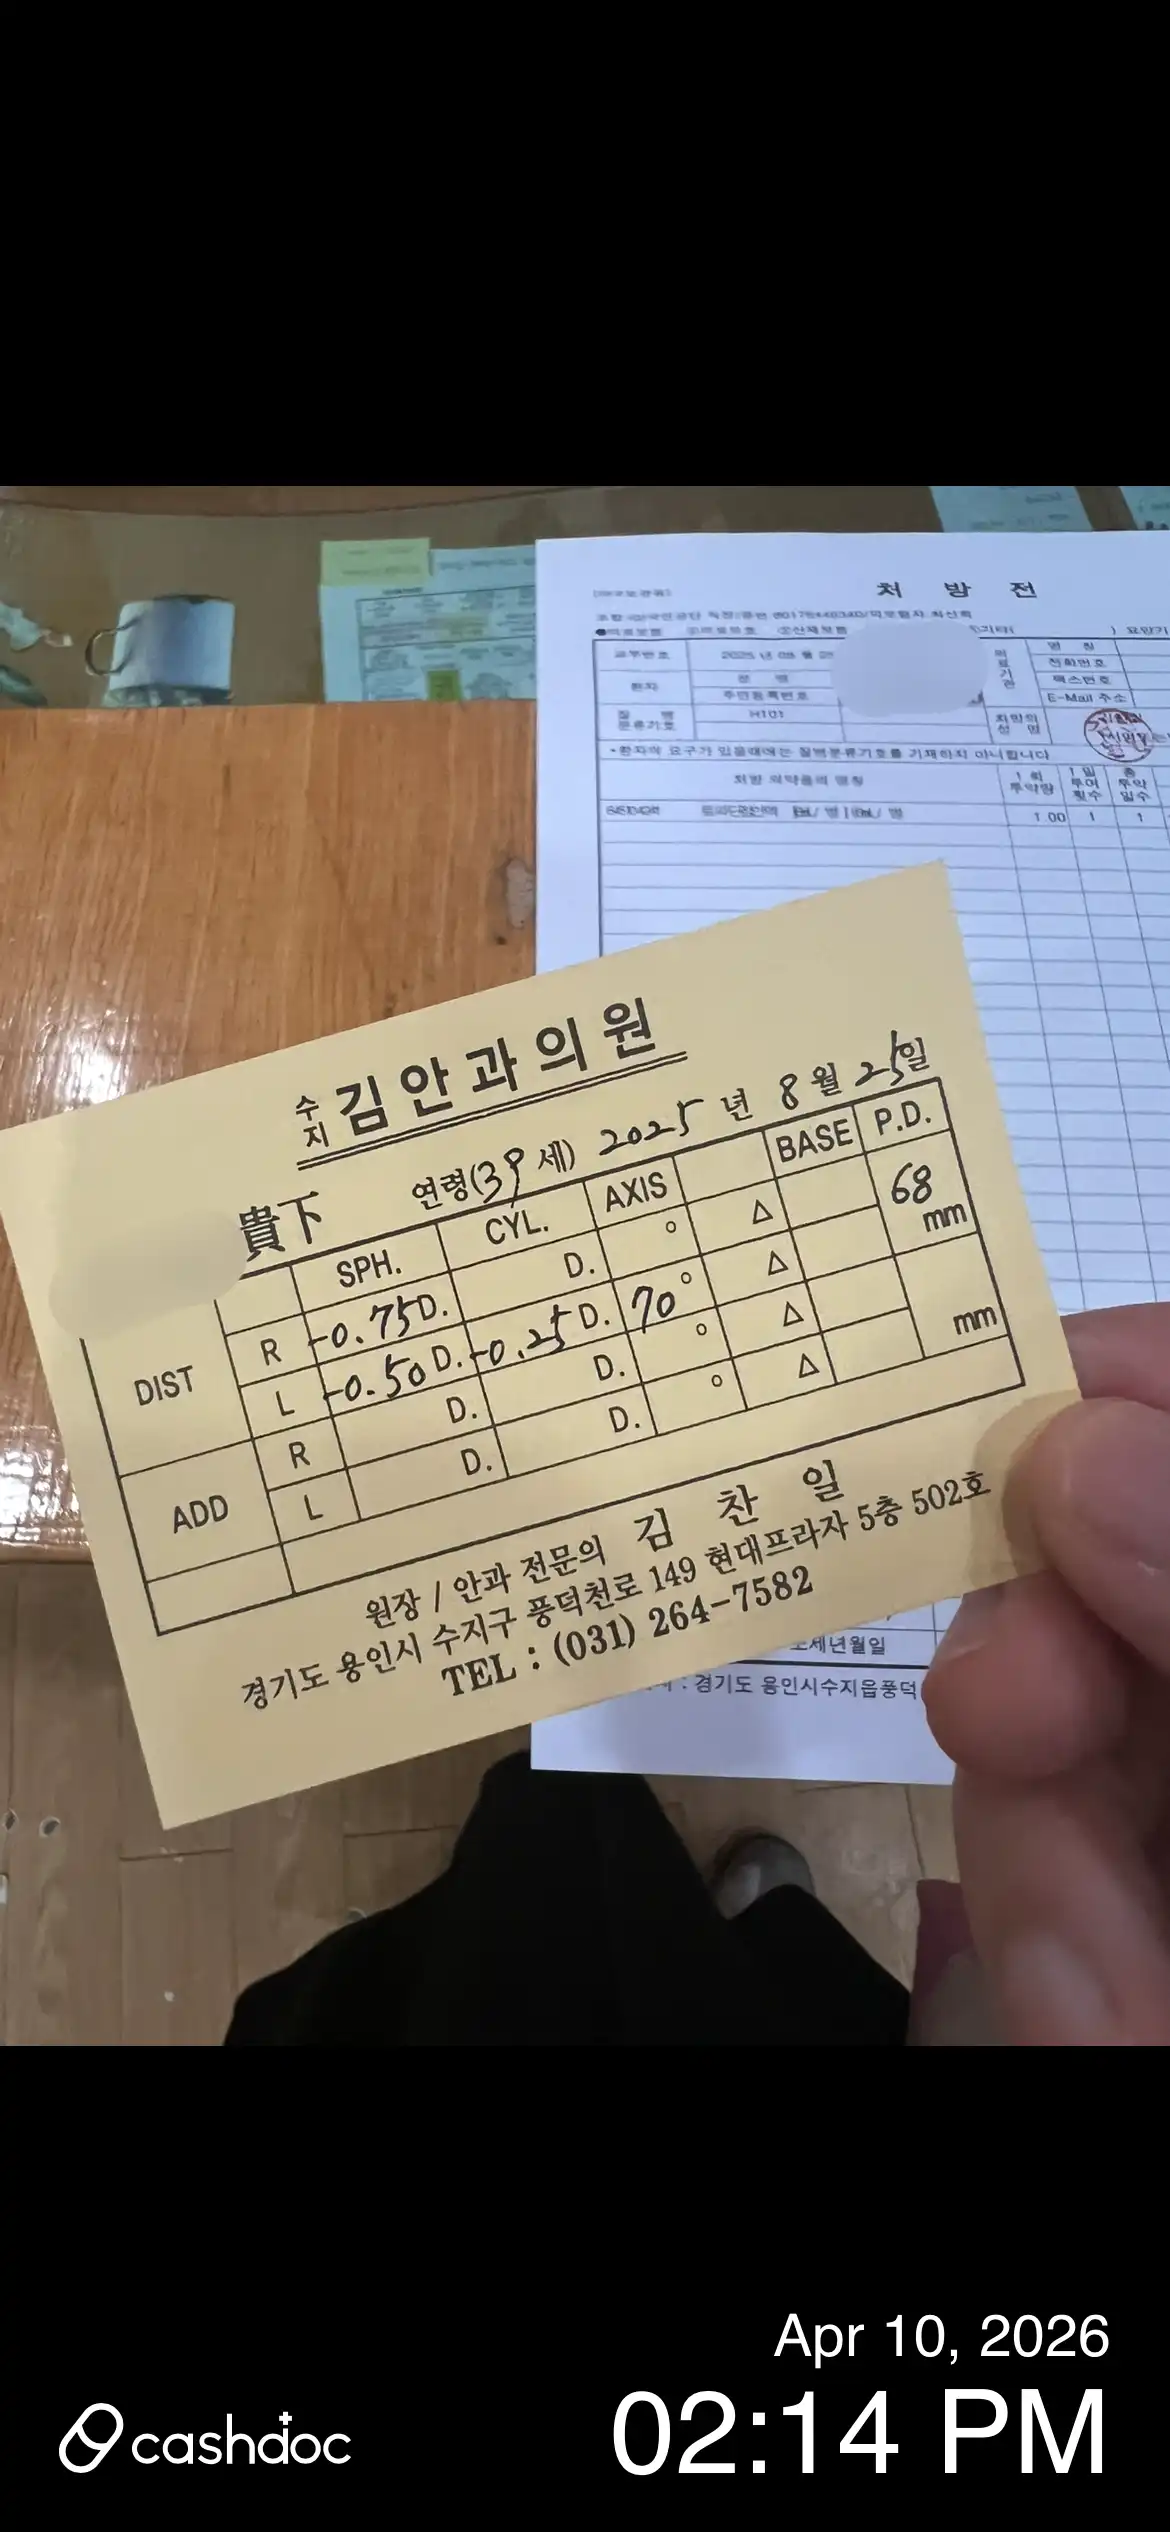 처 방 전
교부번호
2025 년 08 월 25
환자
성 명
주민등록번호
명 칭
전화번호
팩스번호
E-Mail 주소
의료기관
질 병
분류기호
H101
처방의
성 명
•환자의 요구가 있을때에는 질병분류기호를 기재하지 아니합니다
처방 의약품의 명칭
1 회
투약량
1 일
투여
횟수
총
투약
일수
1.00 1 1
수지 김안과의원
貴下 연령(39 세) 2025 년 8 월 25일
SPH. CYL. AXIS BASE P.D.
DIST R -0.75 D. D. ° △ 68 mm
L -0.50 D. -0.25 D. 70° △
ADD R D. D. ° △ mm
L D. D. ° △
원장 / 안과 전문의 김 찬 일
경기도 용인시 수지구 풍덕천로 149 현대프라자 5층 502호
TEL : (031) 264-7582
: 경기도 용인시수지읍풍덕
Apr 10, 2026
02:14 PM
cashdoc